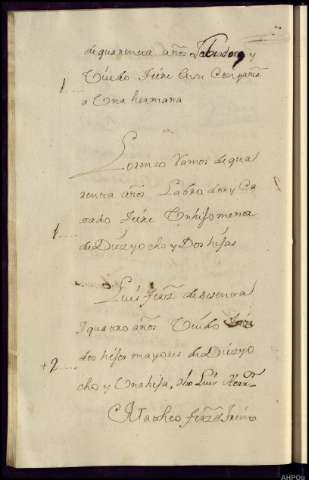 de quarenta años Labrador y
Viudo tiene a su Compañia
1 a Una hermana
Lorenzo Ramos de qua
renta años Labrador y Ca
sado tiene Un hijo menor
1 de Diez y ocho y Dos hijas
Luis ferrz de sesenta
y quatro años Viudo tiene
+2 dos hijos mayores de Diez y
ocho y Una hija, dho Luis
Matheo ferrz
AHPOu